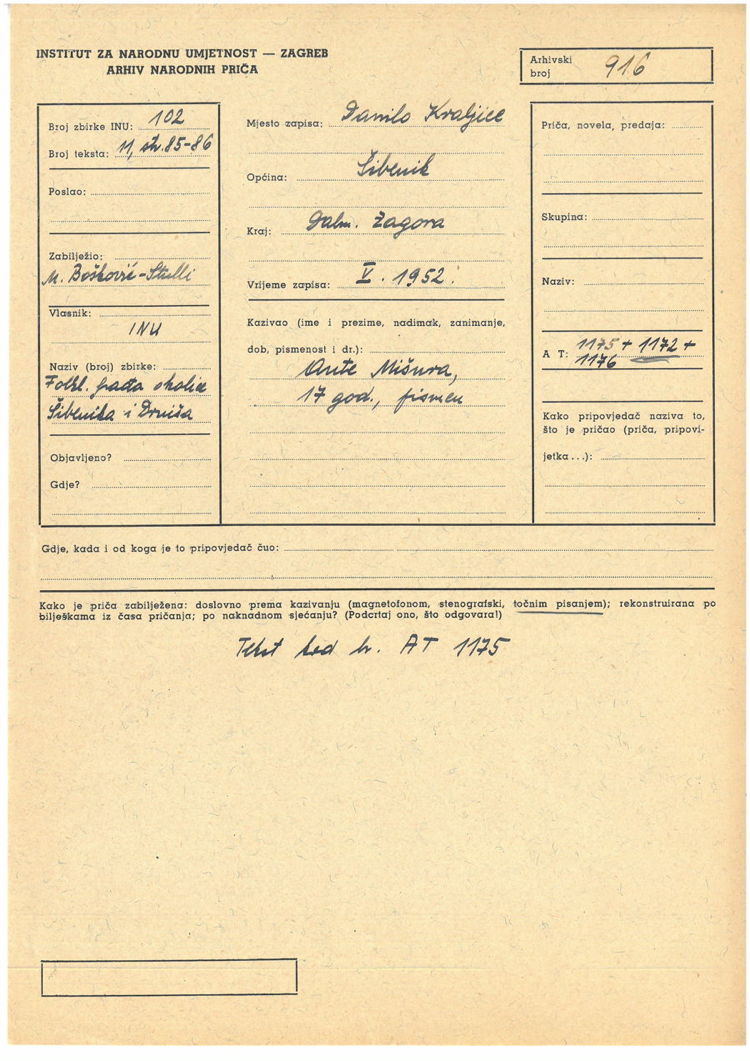 INSTITUT ZA NARODNU UMJETNOST — ZAGREB
ARHIV NARODNIH PRIČA
Arhivski broj 916
Broj zbirke INU: 102
Broj teksta: 11, str. 85-86
Poslao:
Zabilježio:
M. Bošković-Stulli
Vlasnik:
INU
Naziv (broj) zbirke:
Folkl. građa okolice
Šibenika i Drniša
Objavljeno?
Gdje?
Mjesto zapisa: Danilo Kraljice
Općina: Šibenik
Kraj: Dalm. Zagora
Vrijeme zapisa: V. 1952.
Kazivao (ime i prezime, nadimak, zanimanje,
dob, pismenost i dr.):
Ante Mišura,
17 god., pismen
Priča, novela, predaja:
Skupina:
Naziv:
A T: 1175 + 1172 +
1176
Kako pripovjedač naziva to,
što je pričao (priča, pripovi-
jetka...):
Gdje, kada i od koga je to pripovjedač čuo:
Kako je priča zabilježena: doslovno prema kazivanju (magnetofonom, stenografski, točnim pisanjem); rekonstruirana po
bilješkama iz časa pričanja; po naknadnom sjećanju? (Podcrtaj ono, što odgovara!)
Tekst kod br. AT 1175